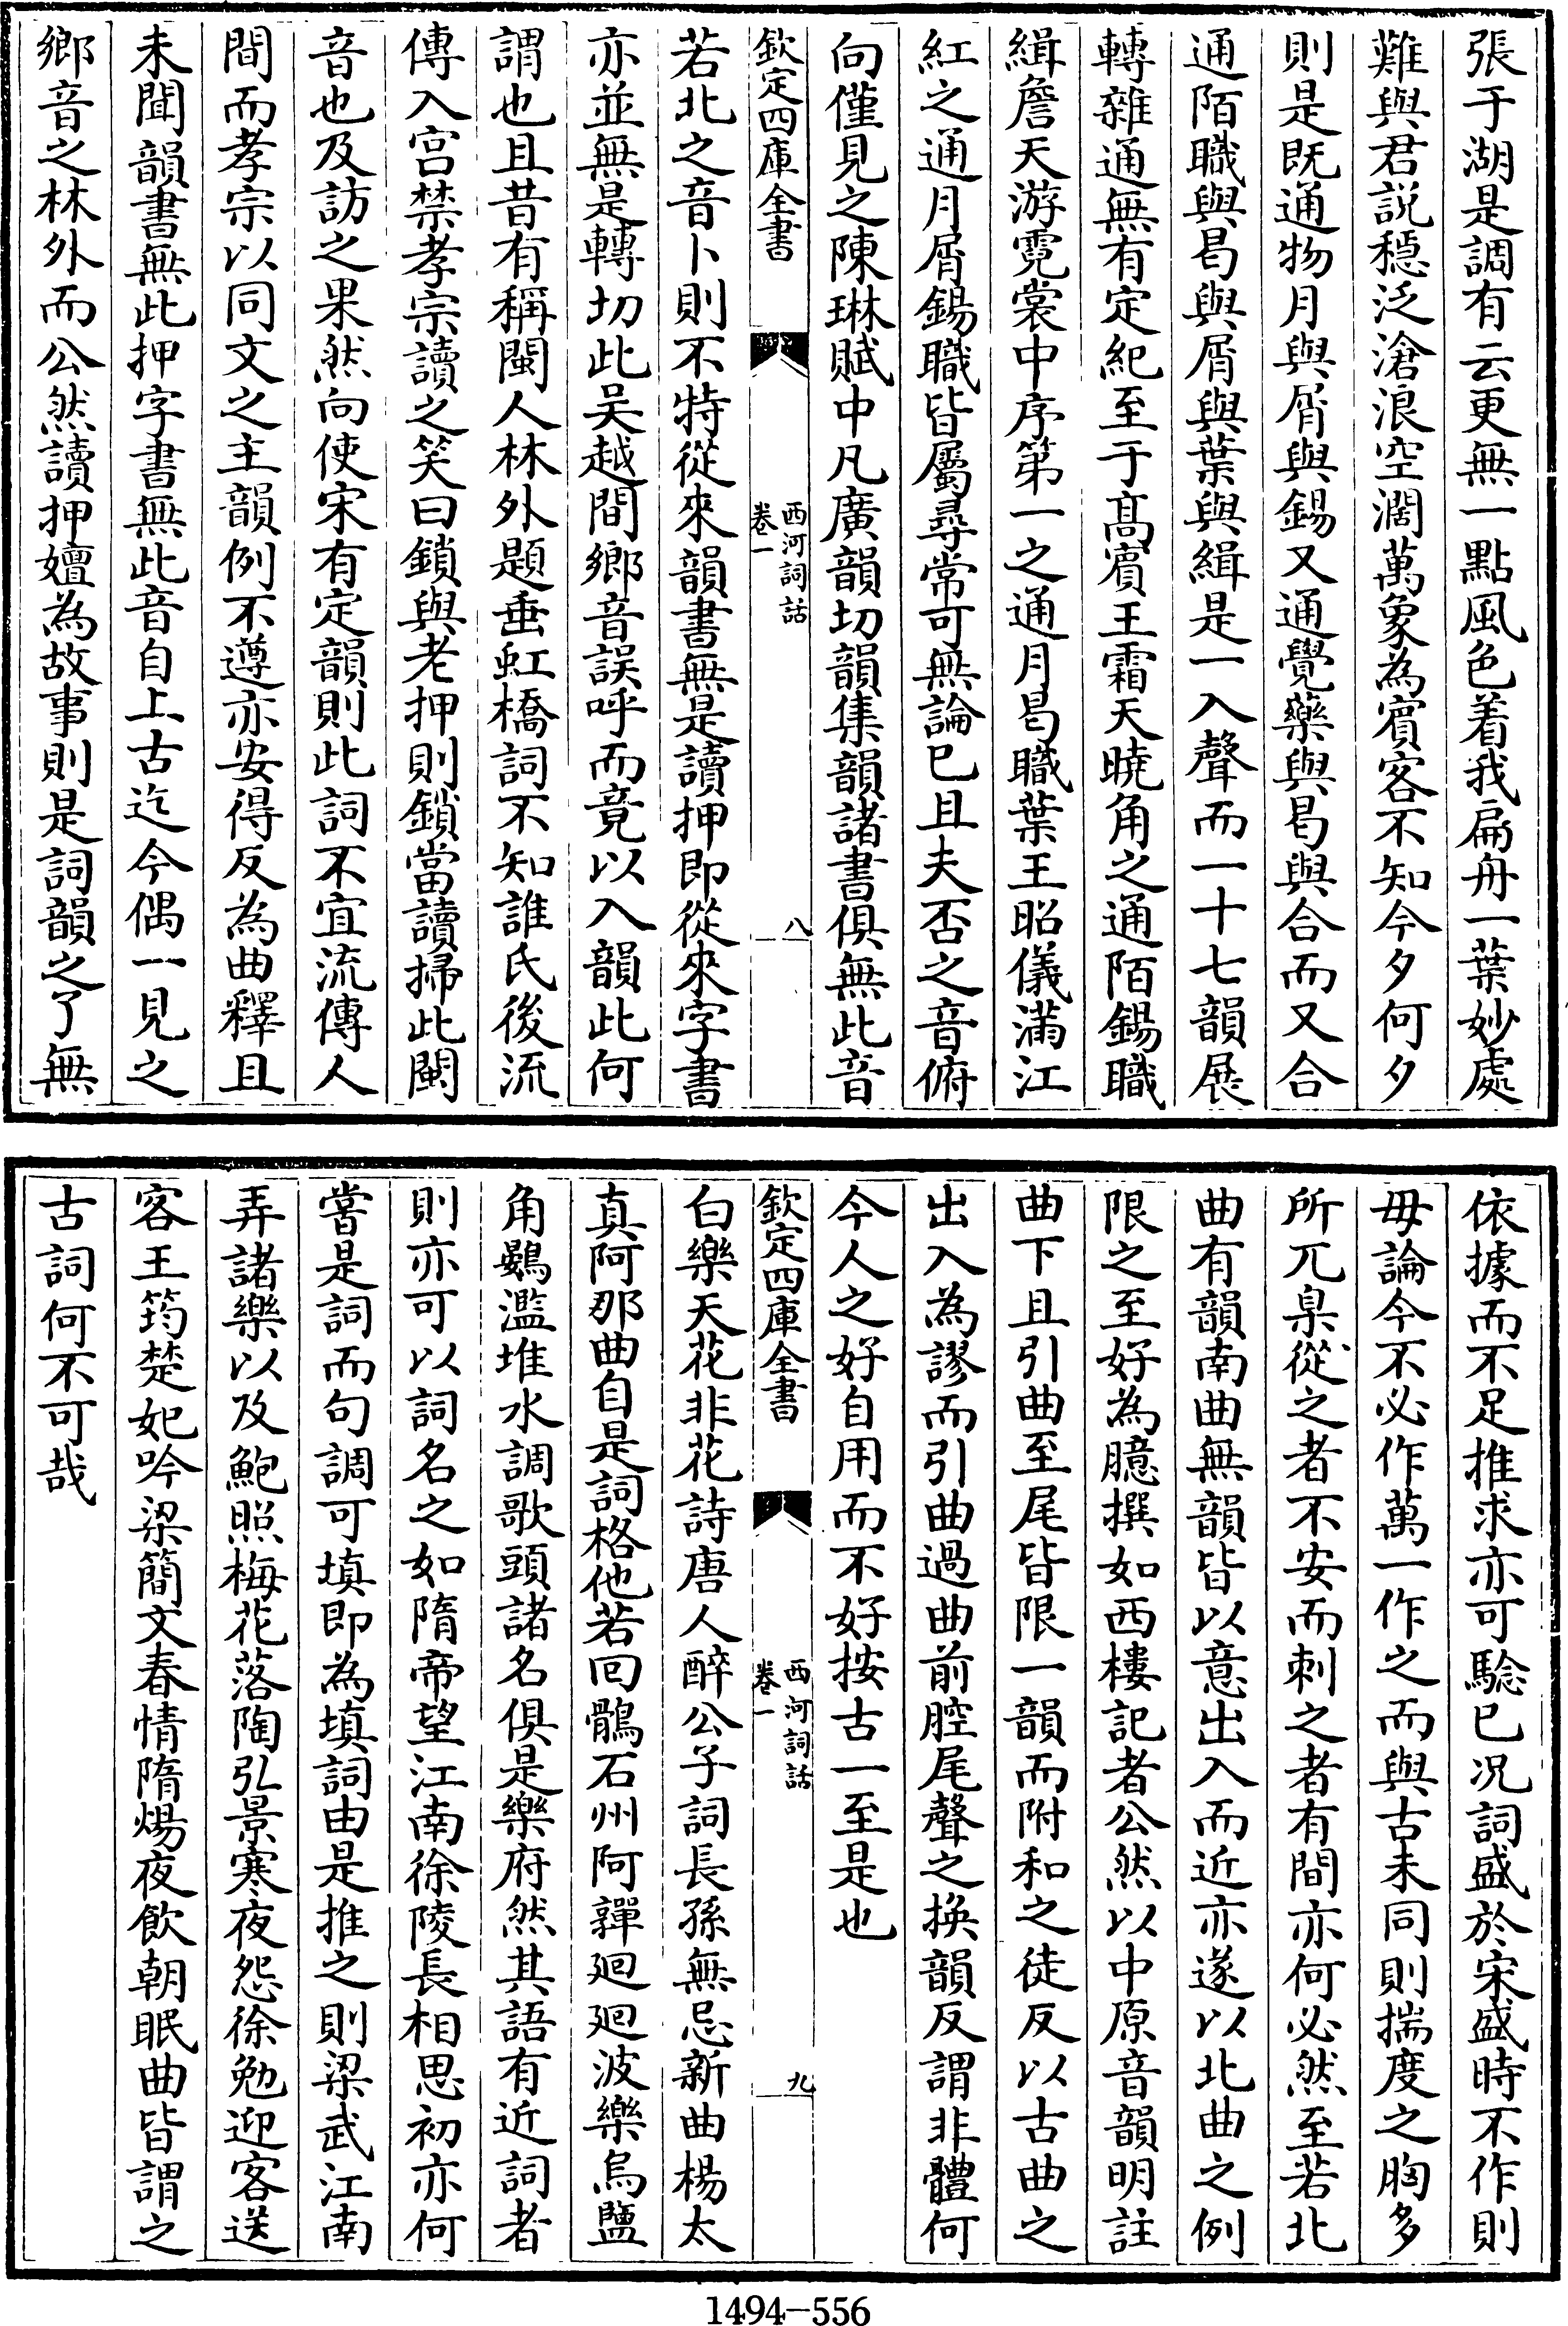 張于湖是調有云更無一點風色着我扁舟一葉妙處
難與君説穩泛滄浪空濶萬象為賓客不知今夕何夕
則是既通物月與屑與錫又通覺藥與曷與合而又合
通陌職與曷與屑與葉與緝是一入聲而一十七韻展
轉雜通無有定紀至于髙賓王霜天曉角之通陌錫職
緝詹天游霓裳中序第一之通月曷職葉王昭儀滿江
紅之通月屑錫職皆屬尋常可無論已且夫否之音俯
向僅見之陳琳賦中凡廣韻切韻集韻諸書俱無此音
欽定四庫全書
西河詞話
卷一
八
若北之音卜則不特從來韻書無是讀押即從來字書
亦並無是轉切此吴越間鄉音誤呼而竟以入韻此何
謂也且昔有稱閩人林外題垂虹橋詞不知誰氏後流
傳入宫禁孝宗讀之笑曰鎖與老押則鎖當讀掃此閩
音也及訪之果然向使宋有定韻則此詞不宜流傳人
間而孝宗以同文之主韻例不遵亦安得反為曲釋且
未聞韻書無此押字書無此音自上古迄今偶一見之
鄉音之林外而公然讀押嬗為故事則是詞韻之了無
依據而不足推求亦可騐已况詞盛於宋盛時不作則
毋論今不必作萬一作之而與古未同則揣度之胸多
所兀臬從之者不安而刺之者有間亦何必然至若北
曲有韻南曲無韻皆以意出入而近亦遂以北曲之例
限之至好為臆撰如西樓記者公然以中原音韻明註
曲下且引曲至尾皆限一韻而附和之徒反以古曲之
出入為謬而引曲過曲前腔尾聲之換韻反謂非體何
今人之好自用而不好按古一至是也
欽定四庫全書
西河詞話
卷一
九
白樂天花非花詩唐人醉公子詞長孫無忌新曲楊太
真阿那曲自是詞格他若回鶻石州阿嚲廻廻波樂烏鹽
角鸂濫堆水調歌頭諸名俱是樂府然其語有近詞者
則亦可以詞名之如隋帝望江南徐陵長相思初亦何
嘗是詞而句調可填即為填詞由是推之則梁武江南
弄諸樂以及鮑照梅花落陶弘景寒夜怨徐勉迎客送
客王筠楚妃吟梁簡文春情隋煬夜飲朝眠曲皆謂之
古詞何不可哉
1494-556